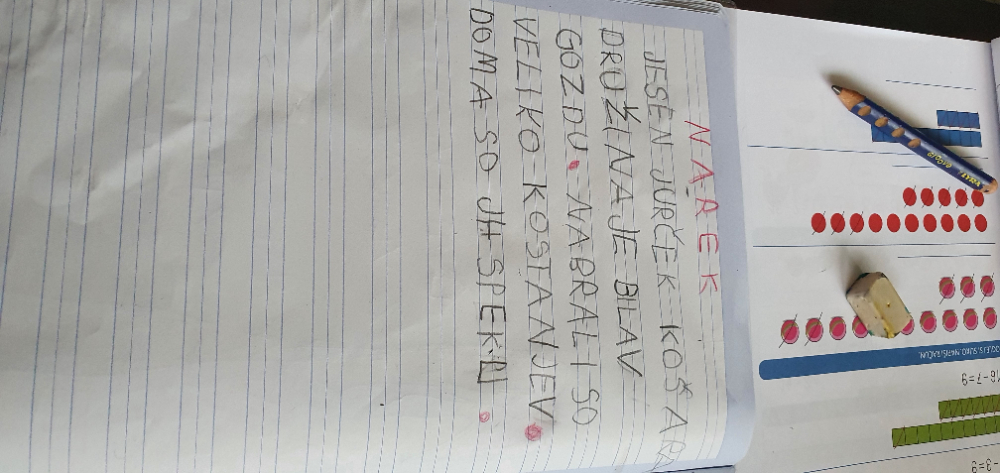 NAREK
JESEN JURČEK KOŠARA
DRUŽINA JE BILA V
GOZDU. NABRALI SO
VELIKO KOSTANJEV.
DOMA SO JH SPEKLI.
16-7=9